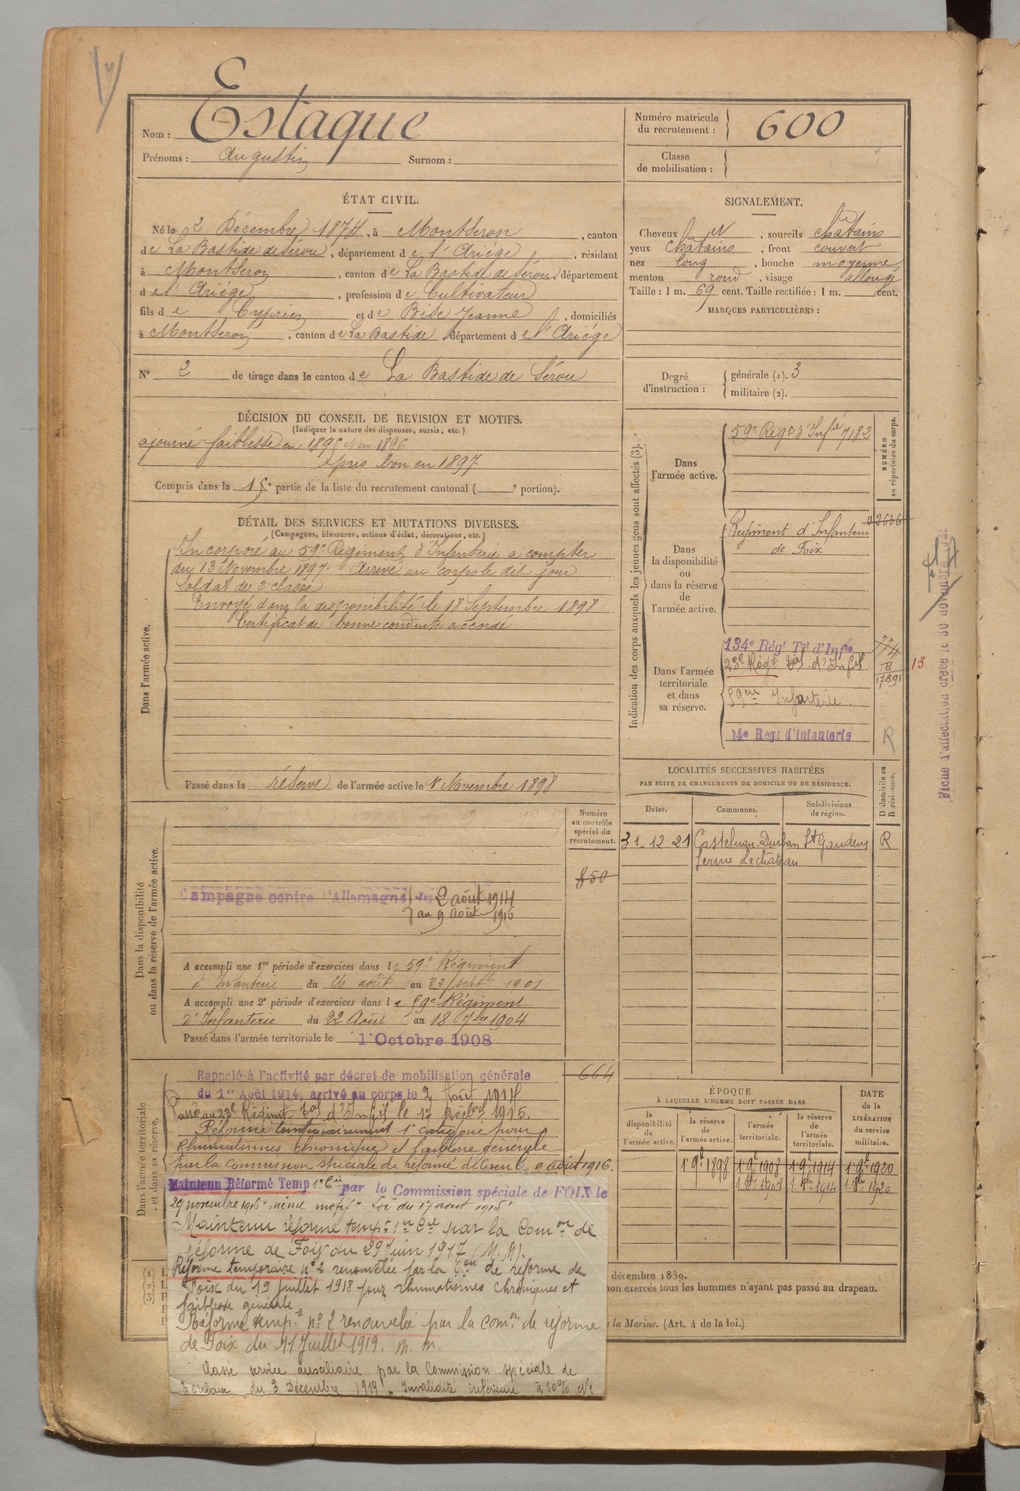 Estaque
Nom :
Prénoms : Augustin Surnom :
Numéro matricule du recrutement : 600
Classe de mobilisation :
ÉTAT CIVIL.
Né le 2 Décembre 1874, à Montseron, canton
de La Bastide de Sérou, département de l'Ariège, résidant
à Montseron, canton de La Bastide de Sérou, département
de l'Ariège, profession de Cultivateur
fils de Cyprien et de Bise Jeanne, domiciliés
à Montseron, canton de La Bastide, département de l'Ariège
N° 2 de tirage dans le canton de La Bastide de Sérou
SIGNALEMENT.
Cheveux N, sourcils chatains
yeux chatains, front couvert
nez long, bouche moyenne
menton rond, visage allongé
Taille : 1 m. 69 cent. Taille rectifiée : 1 m. cent.
MARQUES PARTICULIÈRES :
Degré d'instruction : générale (1). 3
militaire (2).
DÉCISION DU CONSEIL DE REVISION ET MOTIFS.
(Indiquer la nature des dispenses, sursis, etc.)
ajourné faiblesse en 1895 1896
bon en 1897
Compris dans la partie de la liste du recrutement cantonal ( portion).
DÉTAIL DES SERVICES ET MUTATIONS DIVERSES.
(Campagnes, blessures, actions d'éclat, décorations, etc.)
Dans l'armée active.
Incorporé au 59e Régiment d'Infanterie à compter
du 13 Novembre 1897. Arrivé au corps le dit jour
Soldat de 2e classe
Envoyé dans la disponibilité le 18 Septembre 1898
Certificat de bonne conduite accordé
Passé dans la réserve de l'armée active le 1er Novembre 1898
Indication des corps auxquels les jeunes gens sont affectés (3).
NUMÉRO au répertoire du corps.
Dans l'armée active.
59e Regt d'Infie 7182
Dans la disponibilité ou dans la réserve de l'armée active.
Régiment d'Infanterie
de Foix
Dans l'armée territoriale et dans sa réserve.
134e Régt Tal d'Infie
23e Régt d'Infie
17891
13
59eme Infanterie.
14e Régt d'Infanterie
R
LOCALITÉS SUCCESSIVES HABITÉES
PAR SUITE DE CHANGEMENTS DE DOMICILE OU DE RÉSIDENCE.
Dates. Communes. Subdivisions de région. D domicile ou R résidence.
31-12-21 Castelnau-Durban St Gaudens R
ferme Lechateau
Dans la disponibilité ou dans la réserve de l'armée active.
Numéro au contrôle spécial du recrutement.
850
Campagne contre l'Allemagne du 2 août 1914
au 9 août 1916
A accompli une 1re période d'exercices dans le 59e Régiment
d'Infanterie du 26 août au 22 sept. 1901
A accompli une 2e période d'exercices dans le 59e Régiment
d'Infanterie du 22 Août au 18 7bre 1904
Passé dans l'armée territoriale le 1 Octobre 1908
Dans l'armée territoriale et dans sa réserve.
664
Rappelé à l'activité par décret de mobilisation générale
du 1er Août 1914, arrivé au corps le 2 Août 1914
Passé au 23e Régiment Tal d'Infie le 12 1915.
Réformé temporairement 1e catégorie pour
Rhumatismes chroniques et faiblesse générale
par la commission spéciale de réforme 9 août 1916.
Maintenu Réformé Temp. 1e Cie par la Commission spéciale de FOIX le
29 novembre 1916 même motif - Loi du 17 août 1915
Maintenu réformé tempre 1re Cat par la Comon de
réforme de Foix du 29 Juin 1917 (M.M).
Réforme temporaire n° 2 renouvelée par la Con de réforme de
Foix du 19 juillet 1918 pour rhumatismes chroniques et
faiblesse générale.
Réforme tempre n° 2 renouvelée par la comon de réforme
de Foix du 11 Juillet 1919. m. m.
Classé service auxiliaire par la Commission spéciale de
du 3 Décembre 1919. Invalidité inférieure à 10%
ÉPOQUE
À LAQUELLE L'HOMME DOIT PASSER DANS
la disponibilité de l'armée active. la réserve de l'armée active. l'armée territoriale. la réserve de l'armée territoriale.
DATE de la LIBÉRATION du service militaire.
1 9bre 1898 1 9bre 1908 1 9bre 1914 1 9bre 1920
décembre 1889.
non exercés tous les hommes n'ayant pas passé au drapeau.
la Marine. (Art. 4 de la loi.)